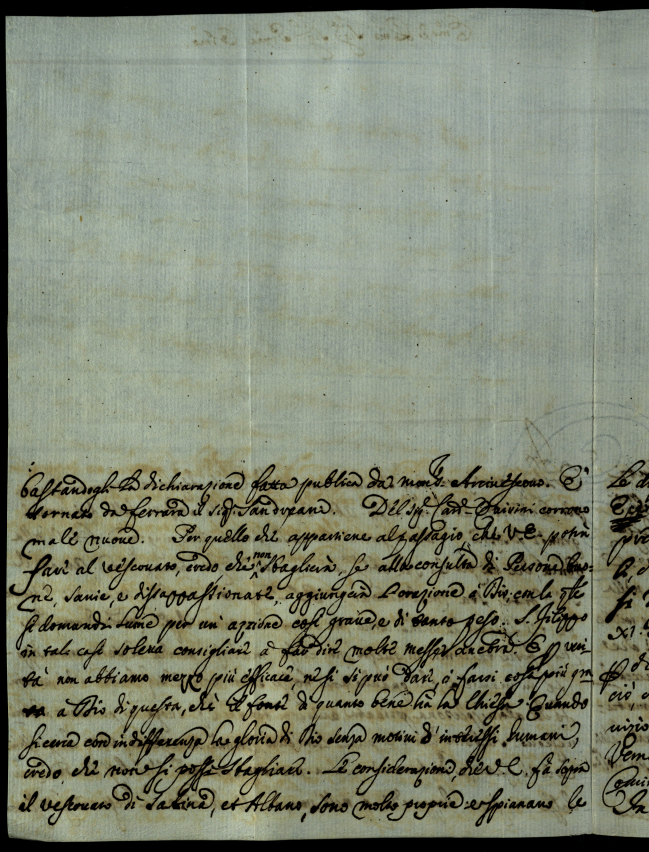 bastandogli la dichiarazione fatta publica da mons.r Arcivescovo. È
tornato da Ferrara il Sig.r Sandreani. Del Sig.r Card. corrono
male nuove. Per quello che appartiene al passagio, che V.E. potria
fare al vescovato, credo che non sbaglierà, se alla consulta di Persone buo-
ne, savie, e disappassionate, aggiungerà l'orazione à Dio, con la q.le
si domandi lume per un' azzione così grave, e di tanto peso. S. Filippo
in tale casi soleva consigliare à far dire molte messe, E p veri-
tà non abbiamo mezzo più efficace, ne si può dare, ò farsi cosa più gra
ta à Dio di questa, ch'è il fonte di quanto bene hà la Chiesa. Quando
si cerca con indifferenza la gloria di Dio senza motivi d'interessi humani,
credo, che non si possa sbagliare. Le considerazioni, che V.E. fà sopra
il vescovato di Sabina, et Albano, sono molto proprie, e spianano le